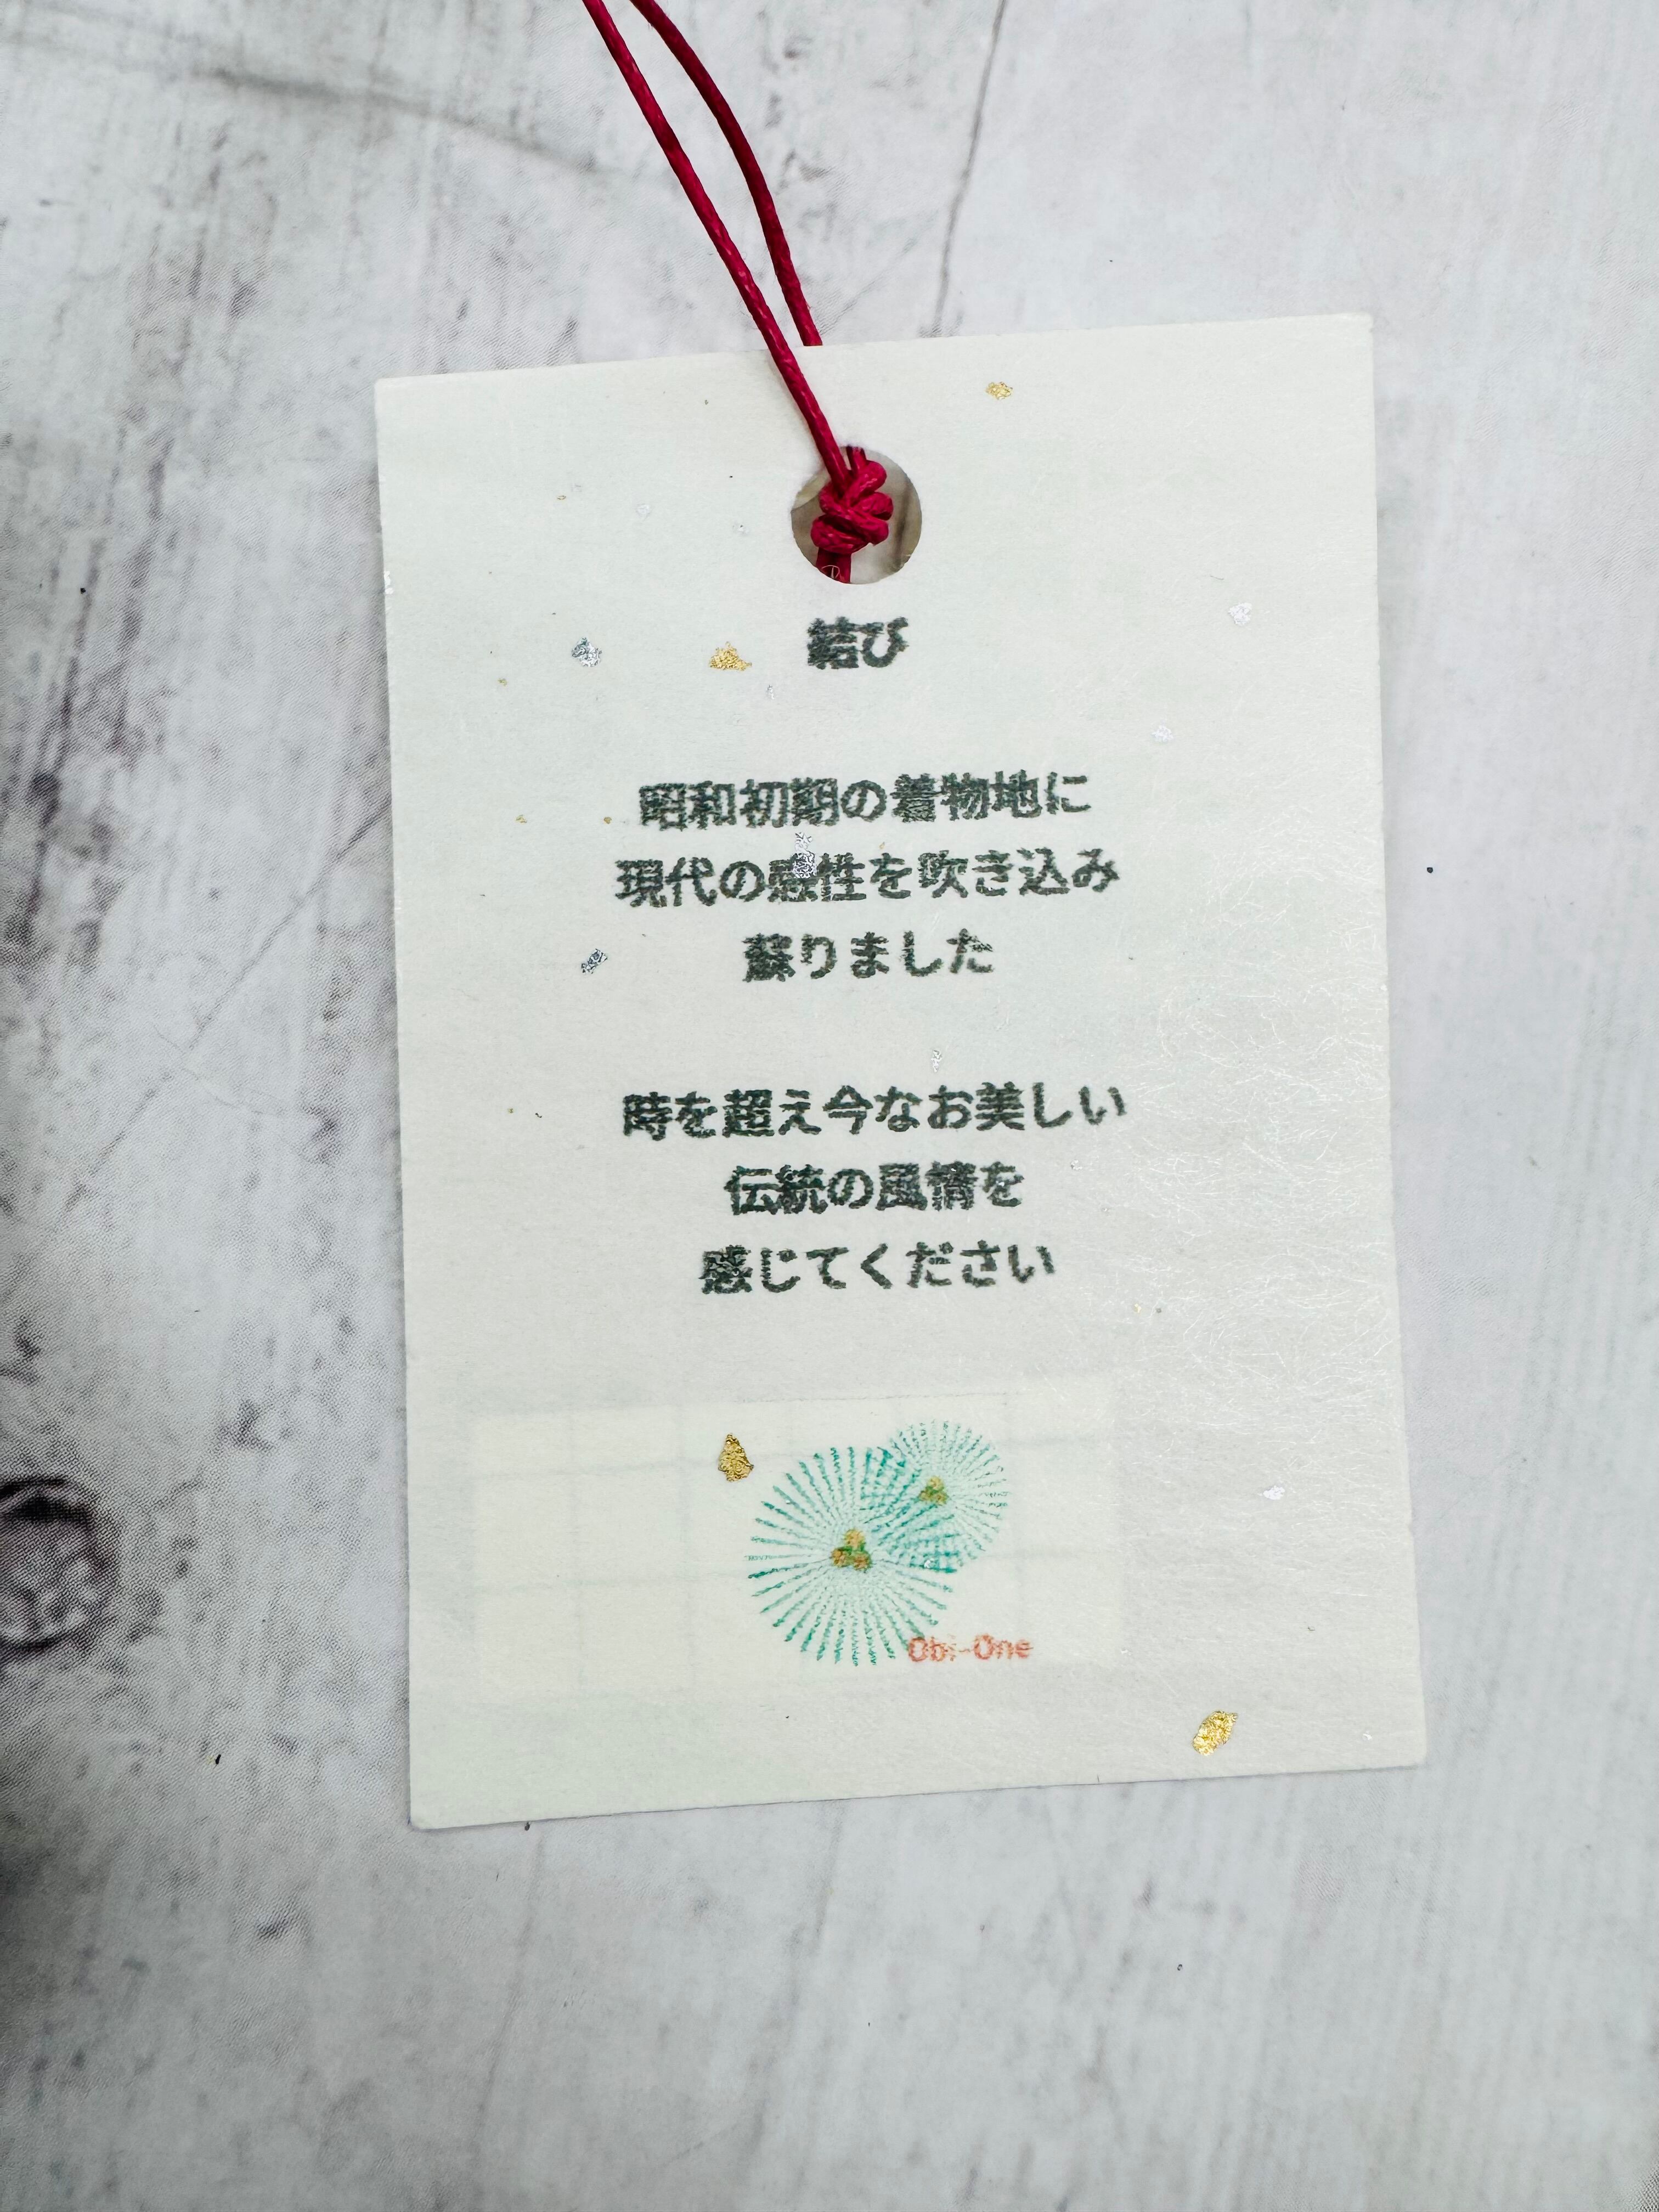 結び
昭和初期の着物地に
現代の感性を吹き込み
蘇りました
時を超え今なお美しい
伝統の風情を
感じてください
Obi-One